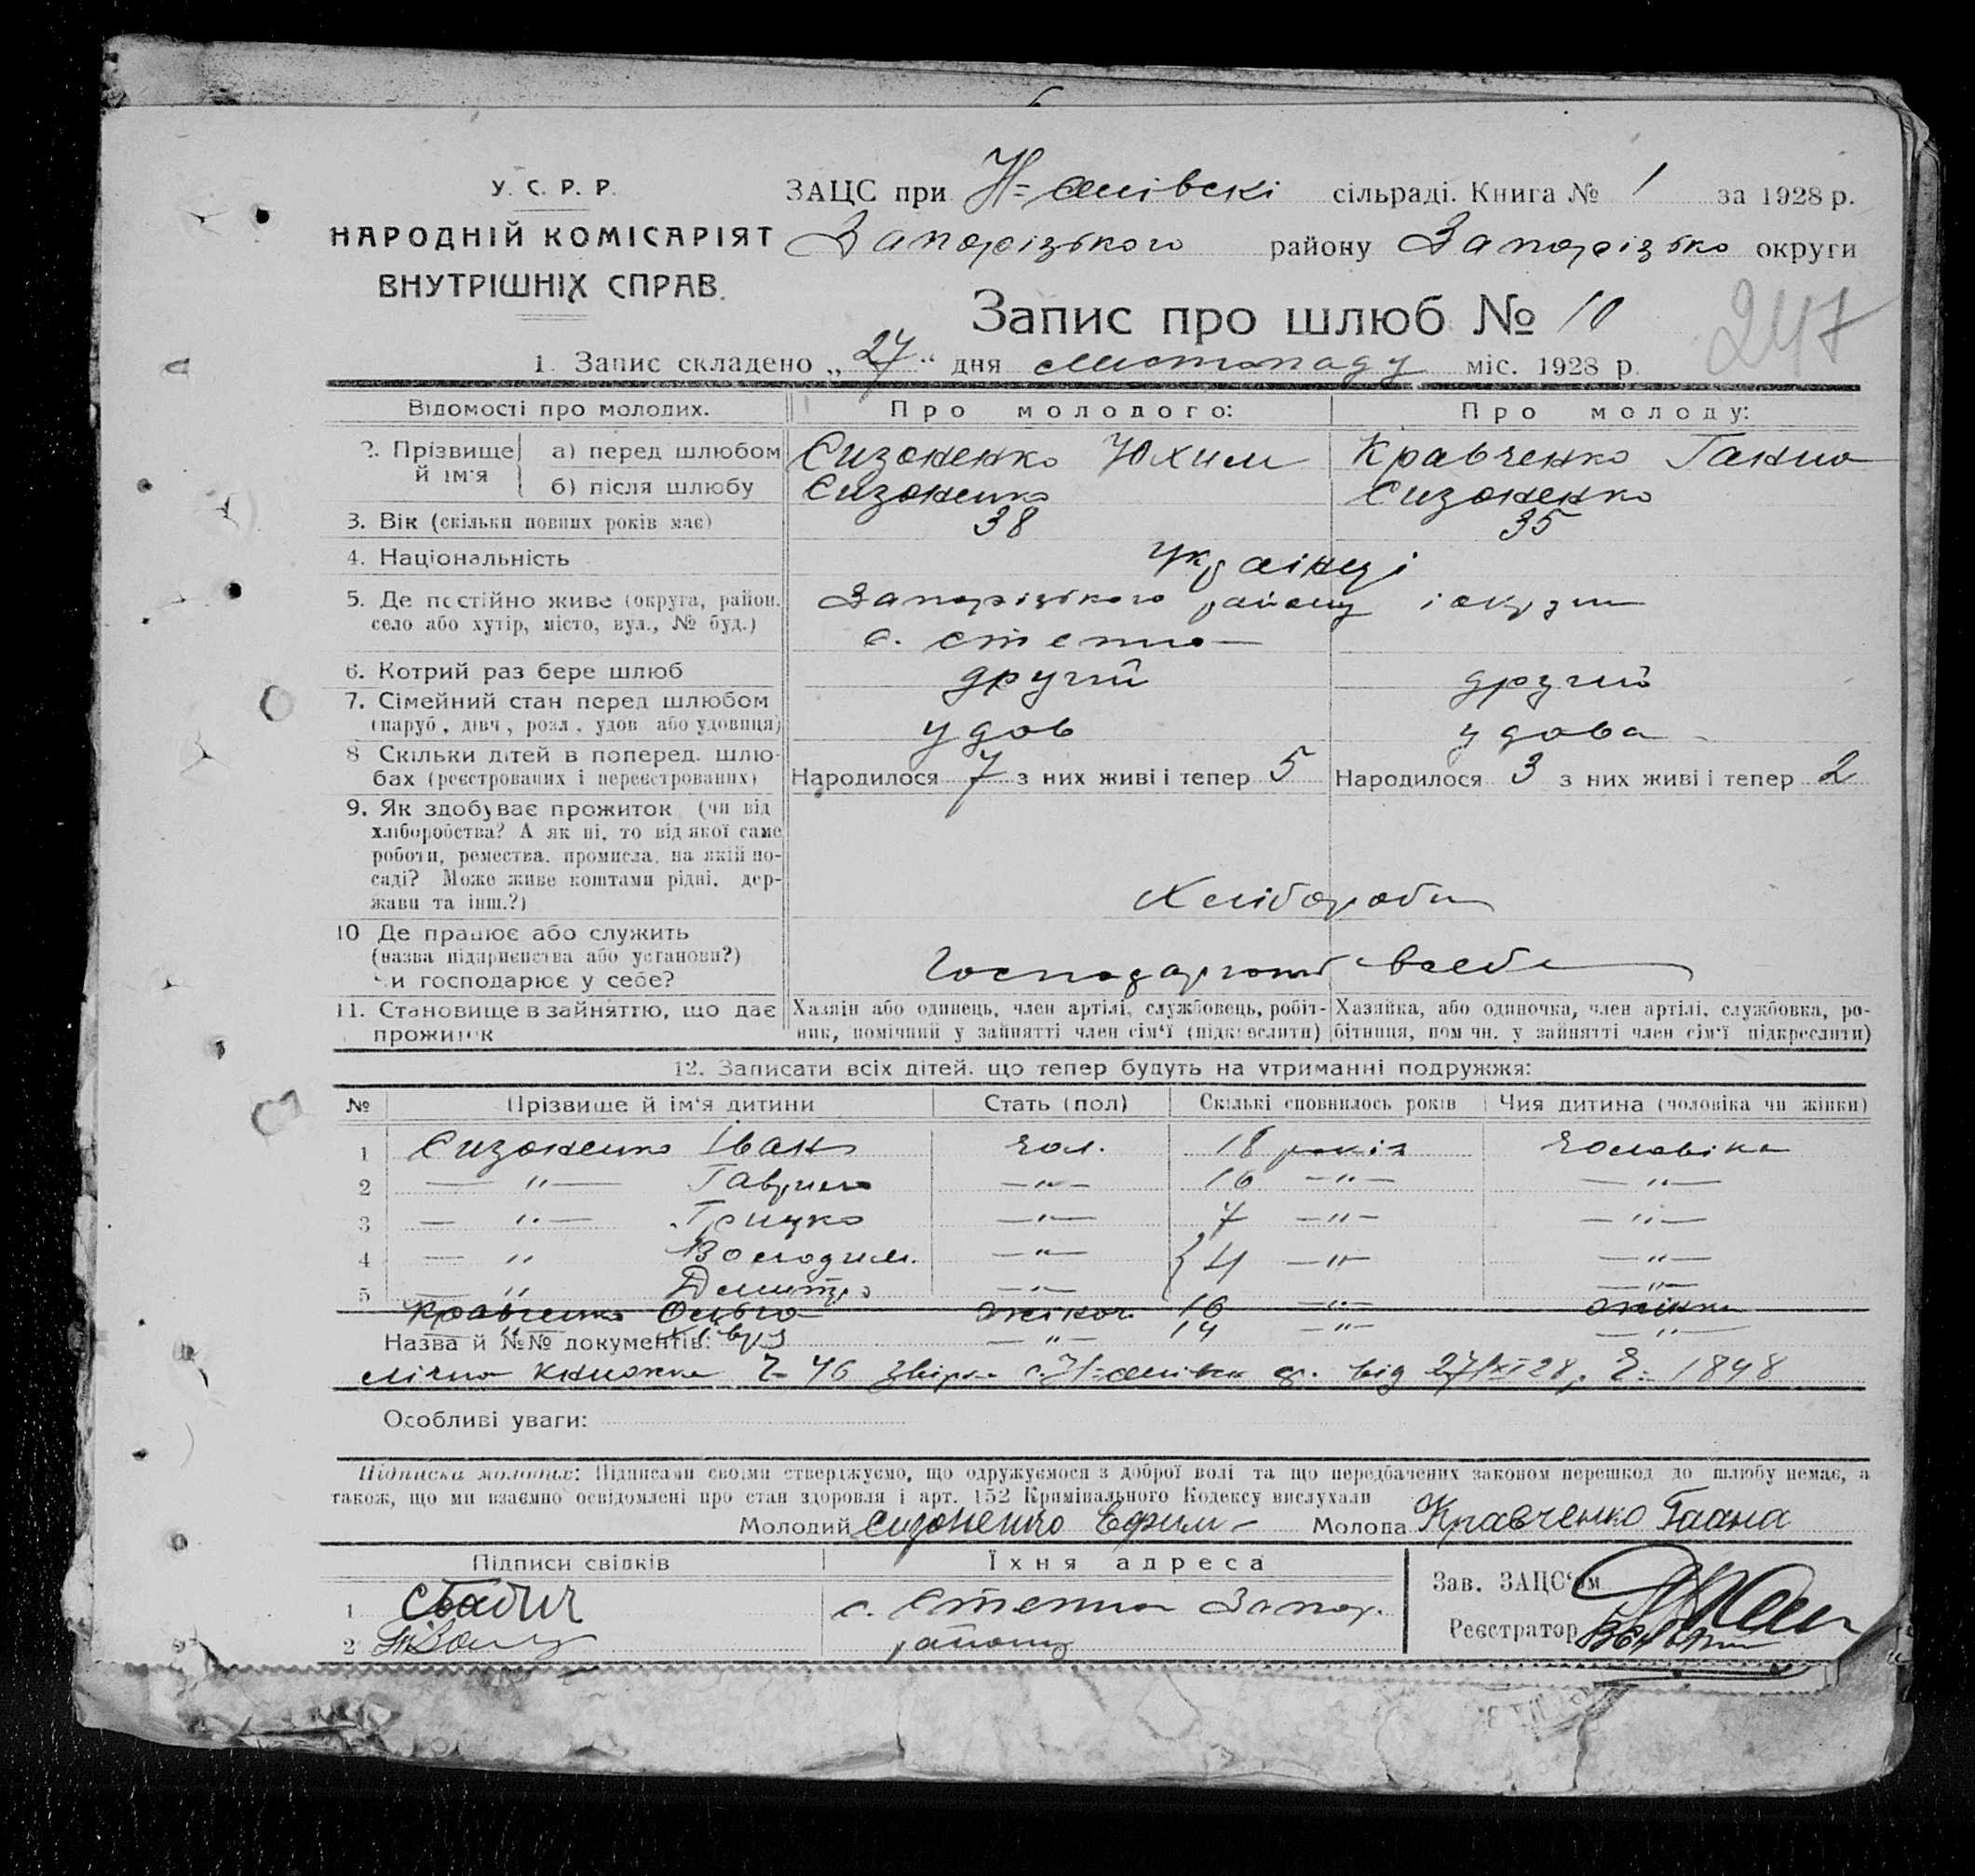 У. С. Р. Р.
НАРОДНІЙ КОМІСАРІЯТ
ВНУТРІШНІХ СПРАВ.
ЗАЦС при сільраді. Книга № 1 за 1928 р.
Запорізького району Запорізько округи
Запис про шлюб № 10
247
1. Запис складено „27“ дня листопаду міс. 1928 р.
Відомості про молодих. Про молодого: Про молоду:
2. Прізвище й ім'я а) перед шлюбом Сизоненко Юхим Кравченко Ганна
б) після шлюбу Сизоненко Сизоненко
3. Вік (скільки повних років має) 38 35
4. Національність Українці
5. Де постійно живе (округа, район, Запорізького району і округи
село або хутір, місто, вул., № буд.) с. Степне
6. Котрий раз бере шлюб другий другий
7. Сімейний стан перед шлюбом
(паруб., дівч., розл., удов. або удовиця) удов удова
8 Скільки дітей в поперед. шлю-
бах (реєстрованих і нереєстрованих) Народилося 7 з них живі і тепер 5 Народилося 3 з них живі і тепер 2
9. Як здобуває прожиток (чи від
хліборобства? А як ні, то від якої саме
роботи, ремества, промисла, на якій по-
саді? Може живе коштами рідні, дер-
жави та інш.?) Хлібороби
10 Де працює або служить
(назва підприємства або установи?)
чи господарює у себе? Господарюют всебе
11. Становище в зайняттю, що дає Хазяїн або одинець, член артілі, службовець, робіт- Хазяйка, або одиночка, член артілі, службовка, ро-
прожиток ник, помічний у зайнятті член сім'ї (підкреслити) бітниця, помічн. у зайнятті член сім'ї підкреслити)
12. Записати всіх дітей, що тепер будуть на утриманні подружжя:
№ Прізвище й ім'я дитини Стать (пол) Скількі сповнилось років Чия дитина (чоловіка чи жінки)
1 Сизоненко Іван чол. 18 років чоловіка
2 —"— Гаврило —"— 16 —"— —"—
3 —"— Грицко —"— 7 —"— —"—
4 —" Володим. —"— 4 —"— —"—
5 —" Дмитро —"— —"—
Кравченко Ольга жіноч. 16 —"— жінки
Назва й №№ документів: —"— 14 —"— —"—
Особливі уваги:
Підписка молодих: Підписами своїми стверджуємо, що одружуємося з доброї волі та що передбачених законом перешкод до шлюбу немає, а
також, що ми взаємно освідомлені про стан здоровля і арт. 152 Кримінального Кодексу вислухали
Молодий Сизоненко Ефим Молода Кравченко Гаана
Підписи свідків Їхня адреса
Зав. ЗАЦС'ом
1 с. Степне Запор.
Реєстратор
2 району